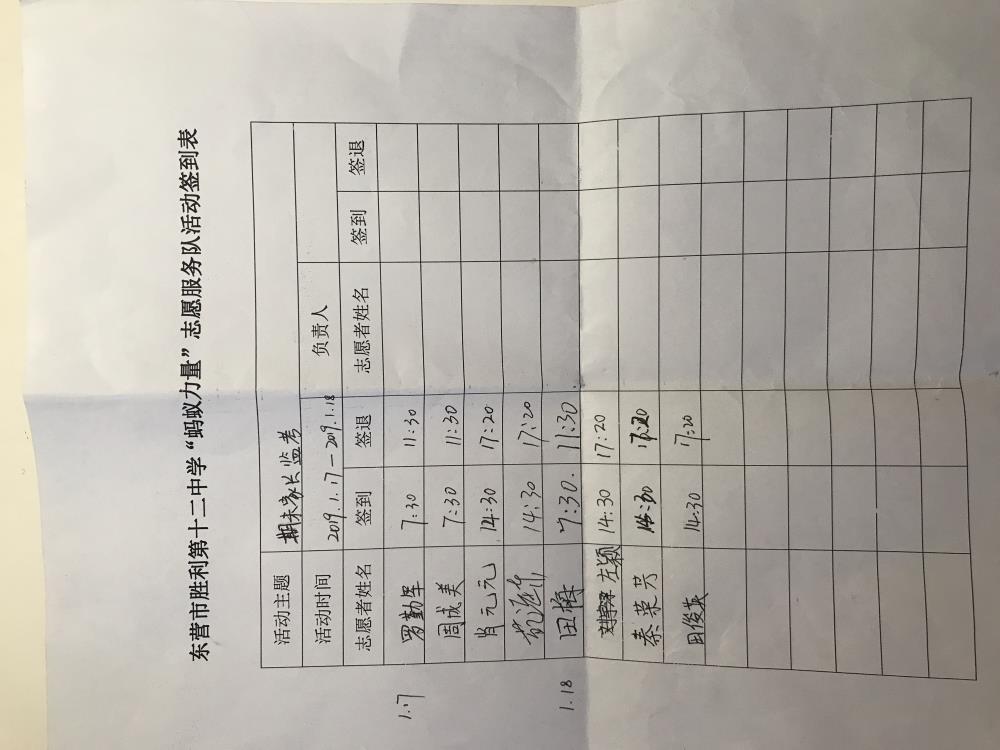 东营市胜利第十二中学“蚂蚁力量”志愿服务队活动签到表
活动主题 期末家长监考
活动时间 2019.1.17-2019.1.18 负责人
志愿者姓名 签到 签退 志愿者姓名 签到 签退
1.17 罗勤军 7:30 11:30
周成美 7:30 11:30
肖元元 14:30 17:20
14:30 17:20
1.18 田梅 7:30. 11:30.
左颖 14:30 17:20
秦荣兴 14:30 17:20
田俊英 14:30 17:20